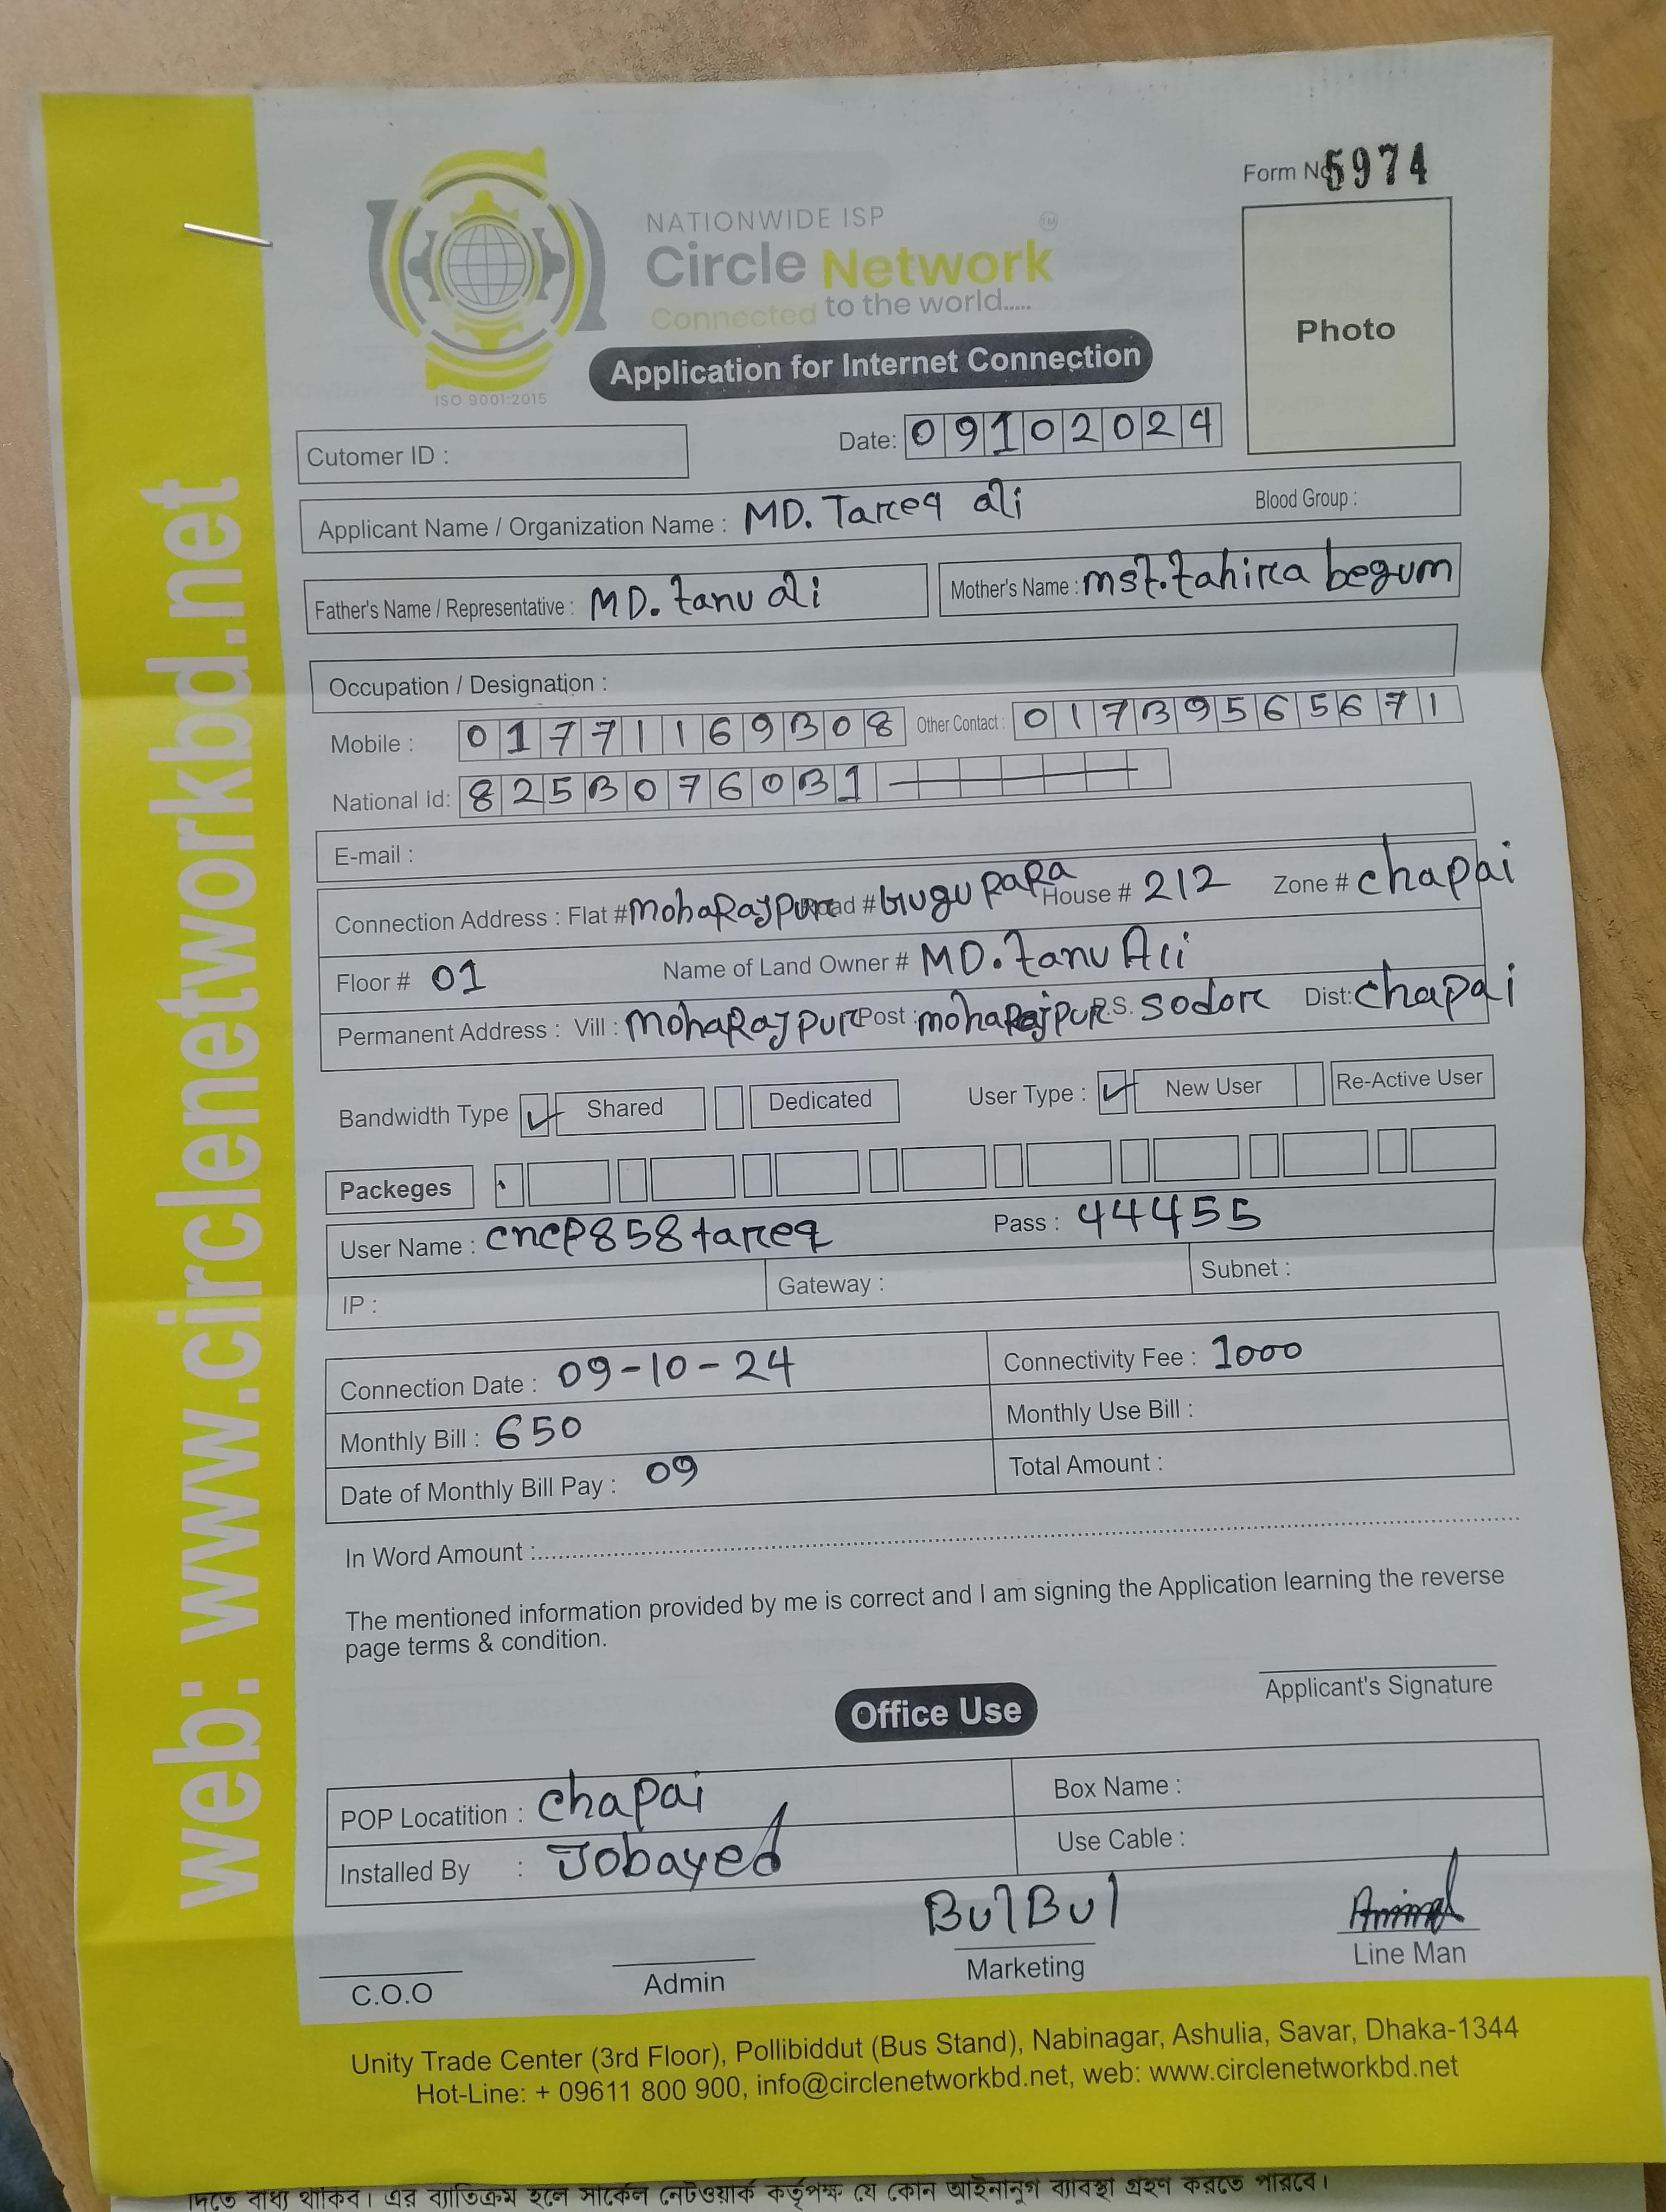 Form No 5974
NATIONWIDE ISP
Circle Network TM
Connected to the world.....
ISO 9001:2015
Application for Internet Connection
Photo
Cutomer ID :
Date: 09102024
Applicant Name / Organization Name : MD. Tareq ali Blood Group :
Father's Name / Representative : MD. tanu ali Mother's Name : mst. tahira begum
Occupation / Designation :
Mobile : 01771169308 Other Contact : 01739565671
National Id: 8253076031
E-mail :
Connection Address : Flat # mohaRajpur Road # Gugu PaRa House # 212 Zone # chapai
Floor # 01 Name of Land Owner # MD. tanu Ali
Permanent Address : Vill : mohaRajpur Post : mohaRajpur P.S. Sodor Dist: chapai
Bandwidth Type Shared Dedicated User Type : New User Re-Active User
Packeges
User Name : cncp858tareq Pass : 44455
IP : Gateway : Subnet :
Connection Date : 09-10-24 Connectivity Fee : 1000
Monthly Bill : 650 Monthly Use Bill :
Date of Monthly Bill Pay : 09 Total Amount :
In Word Amount :
The mentioned information provided by me is correct and I am signing the Application learning the reverse
page terms & condition.
Applicant's Signature
Office Use
POP Locatition : chapai Box Name :
Installed By : Jobayed Use Cable :
BulBul
C.O.O Admin Marketing Line Man
Unity Trade Center (3rd Floor), Pollibiddut (Bus Stand), Nabinagar, Ashulia, Savar, Dhaka-1344
Hot-Line: + 09611 800 900, info@circlenetworkbd.net, web: www.circlenetworkbd.net
web: www.circlenetworkbd.net
দিতে বাধ্য থাকিব। এর ব্যাতিক্রম হলে সার্কেল নেটওয়ার্ক কর্তৃপক্ষ যে কোন আইনানুগ ব্যাবস্থা গ্রহণ করতে পারবে।